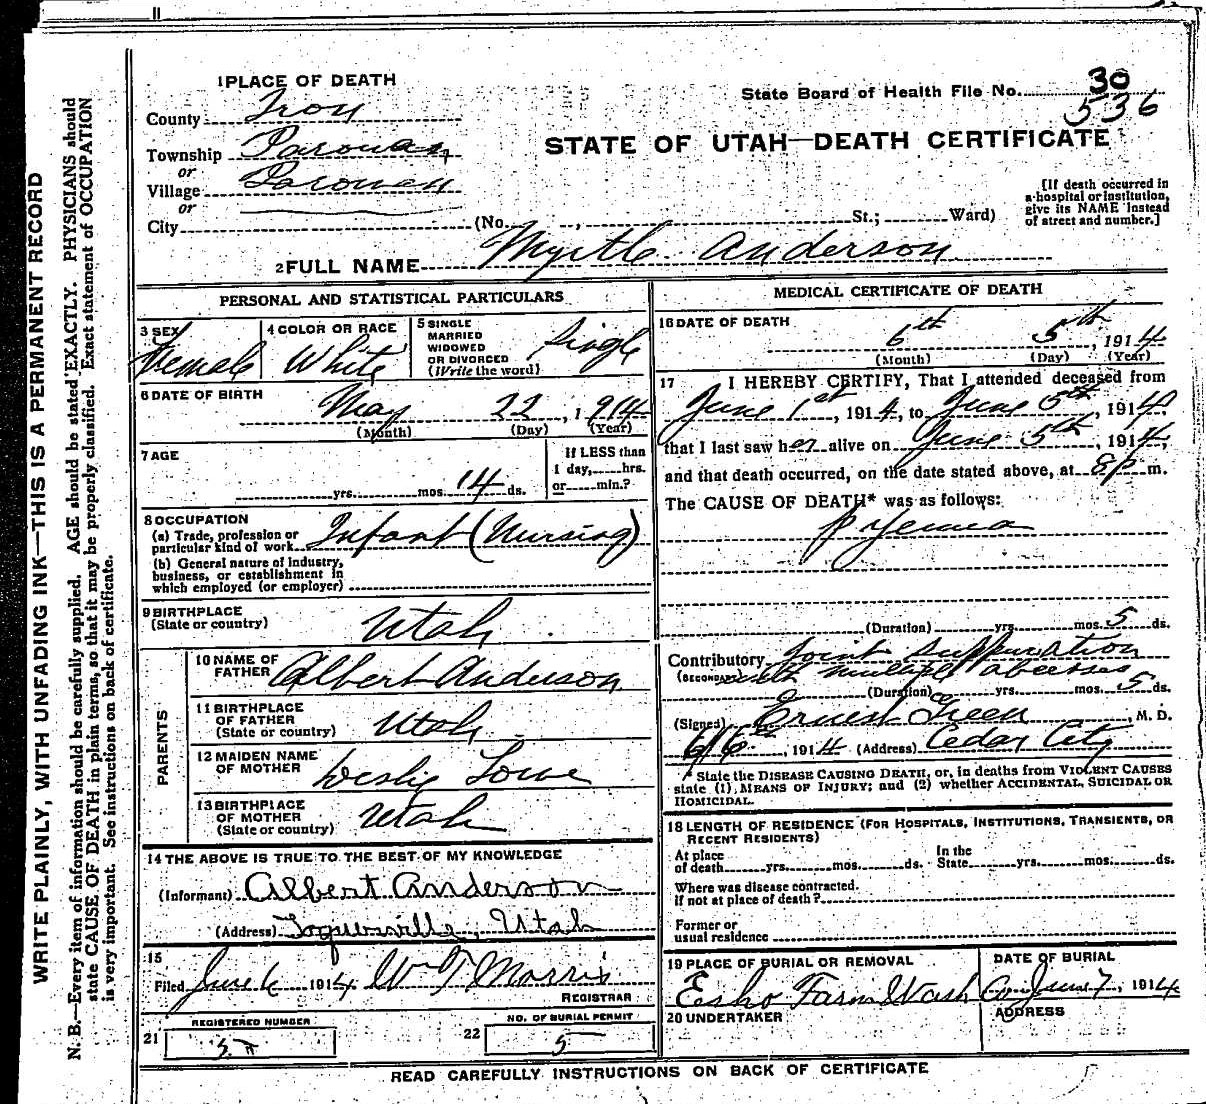 1 PLACE OF DEATH
County Iron
Township Parowan
or
Village Parowan
or
City (No. , St.; Ward)
30
State Board of Health File No. 536
STATE OF UTAH—DEATH CERTIFICATE
[If death occurred in a hospital or institution, give its NAME instead of street and number.]
2 FULL NAME Myrtle Anderson
PERSONAL AND STATISTICAL PARTICULARS
3 SEX Female
4 COLOR OR RACE White
5 SINGLE MARRIED WIDOWED OR DIVORCED (Write the word) Single
6 DATE OF BIRTH
May 22, 1914
(Month) (Day) (Year)
7 AGE
yrs. mos. 14 ds.
If LESS than 1 day, hrs. or min.?
8 OCCUPATION
(a) Trade, profession or particular kind of work Infant (Nursing)
(b) General nature of industry, business, or establishment in which employed (or employer)
9 BIRTHPLACE (State or country) Utah
PARENTS
10 NAME OF FATHER Albert Anderson
11 BIRTHPLACE OF FATHER (State or country) Utah
12 MAIDEN NAME OF MOTHER Lowe
13 BIRTHPLACE OF MOTHER (State or country) Utah
14 THE ABOVE IS TRUE TO THE BEST OF MY KNOWLEDGE
(Informant) Albert Anderson
(Address) Toquerville, Utah
15
Filed June 6 1914 W T Morris
REGISTRAR
21 REGISTERED NUMBER
22 NO. OF BURIAL PERMIT 5
MEDICAL CERTIFICATE OF DEATH
16 DATE OF DEATH
6th 5th, 1914
(Month) (Day) (Year)
17 I HEREBY CERTIFY, That I attended deceased from
June 1st, 1914, to June 5th, 1914,
that I last saw her alive on June 5th, 1914,
and that death occurred, on the date stated above, at 8 p m.
The CAUSE OF DEATH* was as follows:
pyemea
(Duration) yrs. mos. 5 ds.
Contributory Joint suppuration
(SECONDARY) with multiple abcesses
(Duration) yrs. mos. 5 ds.
(Signed) Ernest Green, M. D.
6/6, 1914 (Address) Cedar City
* State the DISEASE CAUSING DEATH, or, in deaths from VIOLENT CAUSES
state (1) MEANS OF INJURY; and (2) whether ACCIDENTAL, SUICIDAL OR
HOMICIDAL.
18 LENGTH OF RESIDENCE (FOR HOSPITALS, INSTITUTIONS, TRANSIENTS, OR
RECENT RESIDENTS)
At place of death yrs. mos. ds. In the State yrs. mos. ds.
Where was disease contracted,
if not at place of death?
Former or
usual residence
19 PLACE OF BURIAL OR REMOVAL
Farm Wash Co
DATE OF BURIAL
June 7, 1914
20 UNDERTAKER
ADDRESS
READ CAREFULLY INSTRUCTIONS ON BACK OF CERTIFICATE
WRITE PLAINLY, WITH UNFADING INK—THIS IS A PERMANENT RECORD
N. B.—Every item of information should be carefully supplied. AGE should be stated EXACTLY. PHYSICIANS should
state CAUSE OF DEATH in plain terms, so that it may be properly classified. Exact statement of OCCUPATION
is very important. See instructions on back of certificate.